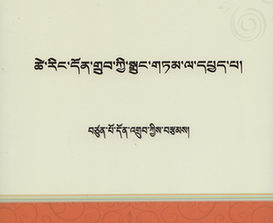 ཚེ་རིང་དོན་གྲུབ་ཀྱི་སྒྲུང་གཏམ་ལ་དཔྱད་པ།
བཙུན་པོ་དོན་འགྲུབ་ཀྱིས་བརྩམས།